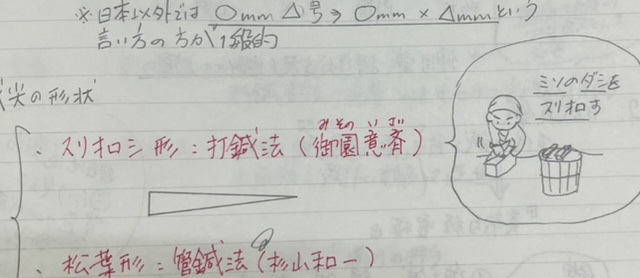 ※日本以外では ○mm △号→ ○mm × △mmという
言い方の方が1般的
尖の形状
・スリオロシ形：打鍼法（御園意斉）
みその いさい
ミソのダシを
スリオロす
・松葉形：管鍼法（杉山和一）